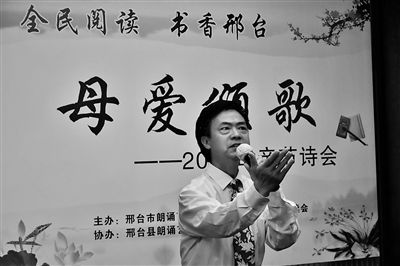 全民阅读 书香邢台
母爱颂歌
——20 诗会
主办：邢台市朗诵
协办：邢台县朗诵 会